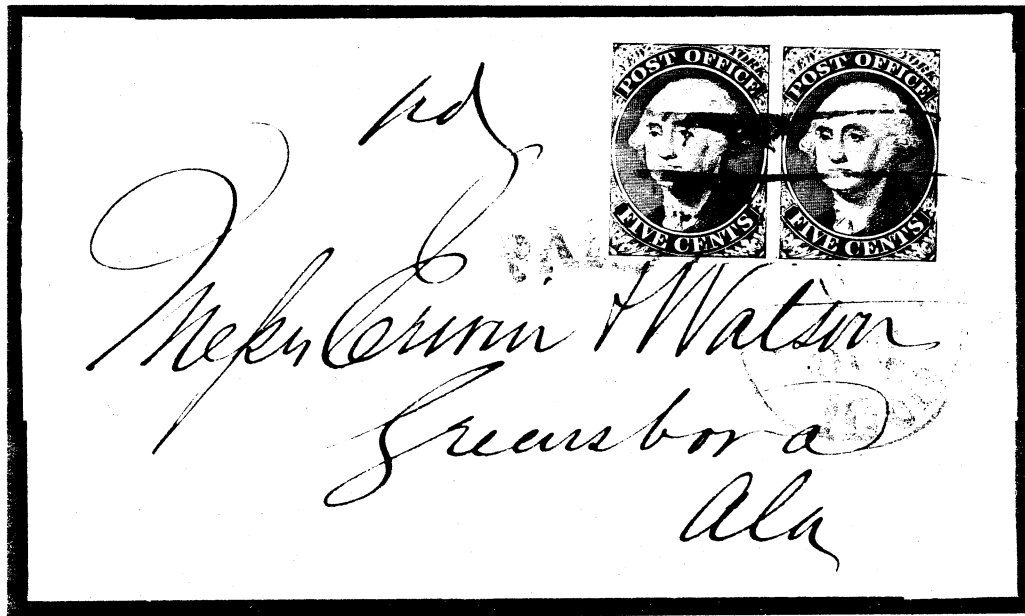 pd
NEW YORK
POST OFFICE
FIVE CENTS
NEW YORK
POST OFFICE
FIVE CENTS
PAI
Messrs Erwin & Watson
Greensboro
Ala